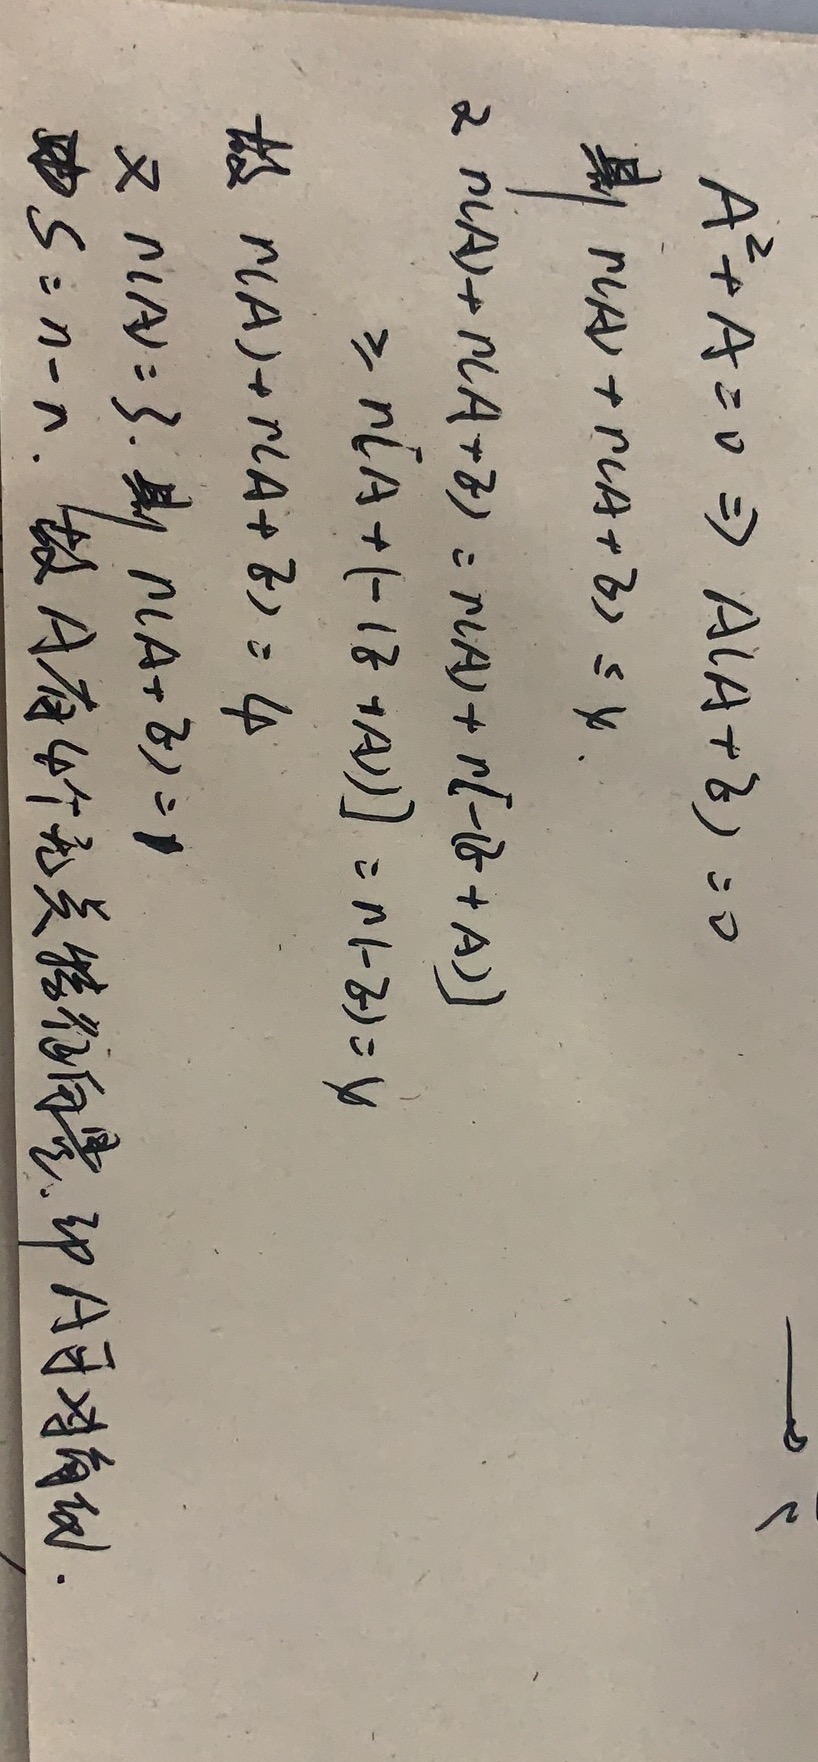 A²+A=0 ⇒ A(A+E)=0
则 r(A)+r(A+E)≤4.
又 r(A)+r(A+E)=r(A)+r[-(E+A)]
≥ r[A+(-(E+A))]=r(-E)=4
故 r(A)+r(A+E)=4
又 r(A)=3. 则 r(A+E)=1
由 S=n-r. 故 A有4个无关特征向量. 即 A可对角化.